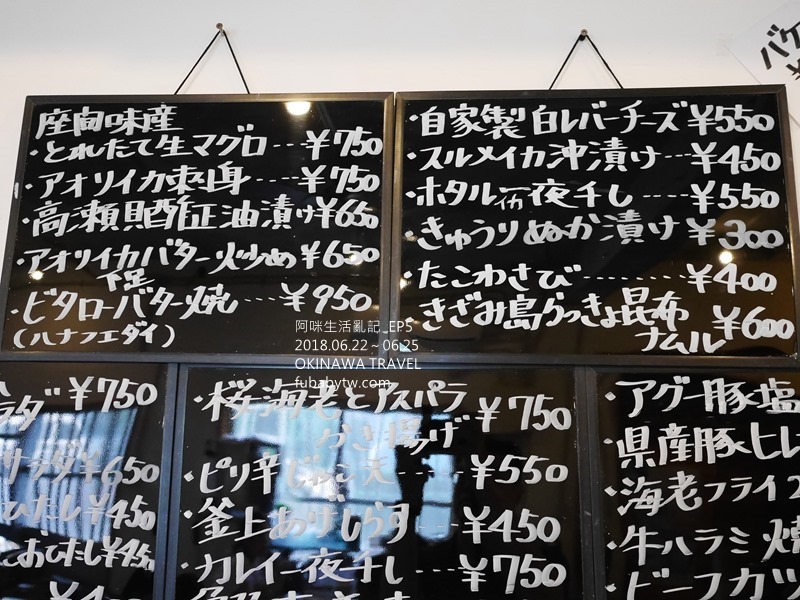 座間味産
・とれたて生マグロ…¥750
・アオリイカ刺身…¥750
・高瀬貝酢征油漬け¥650
・アオリイカバター火炒め¥650
下足
・ビタローバター焼…¥950
(ハナフエダイ)
・自家製白レバーチーズ¥550
・スルメイカ沖漬け…¥450
・ホタルイカ一夜干し…¥550
・きゅうりぬか漬け¥300
・たこわさび……¥400
・きざみ島らっきょ昆布
ナムル¥600
バケ
¥
ラダ¥750
サラダ¥650
ひたし¥450
おひたし¥450
・桜海老とアスパラ
かき揚げ¥750
・ピリ辛じゃこ天…¥550
・釜上あげしらす…¥450
・カレイ一夜干し…¥750
・アグー豚塩
・県産豚ヒレ
・海老フライ2
・牛ハラミ焼
・ビーフカツ
阿咪生活亂記_EP5
2018.06.22~06.25
OKINAWA TRAVEL
fubabytw.com